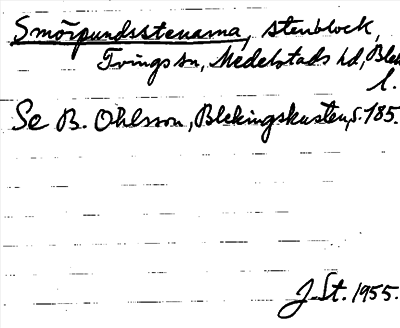 Smörpundsstenarna, stenblock,
Tvings sn, Medelstads hd, Blek
l.
Se B. Ohlsson, Blekingskusten, s. 185.
J. St. 1955.